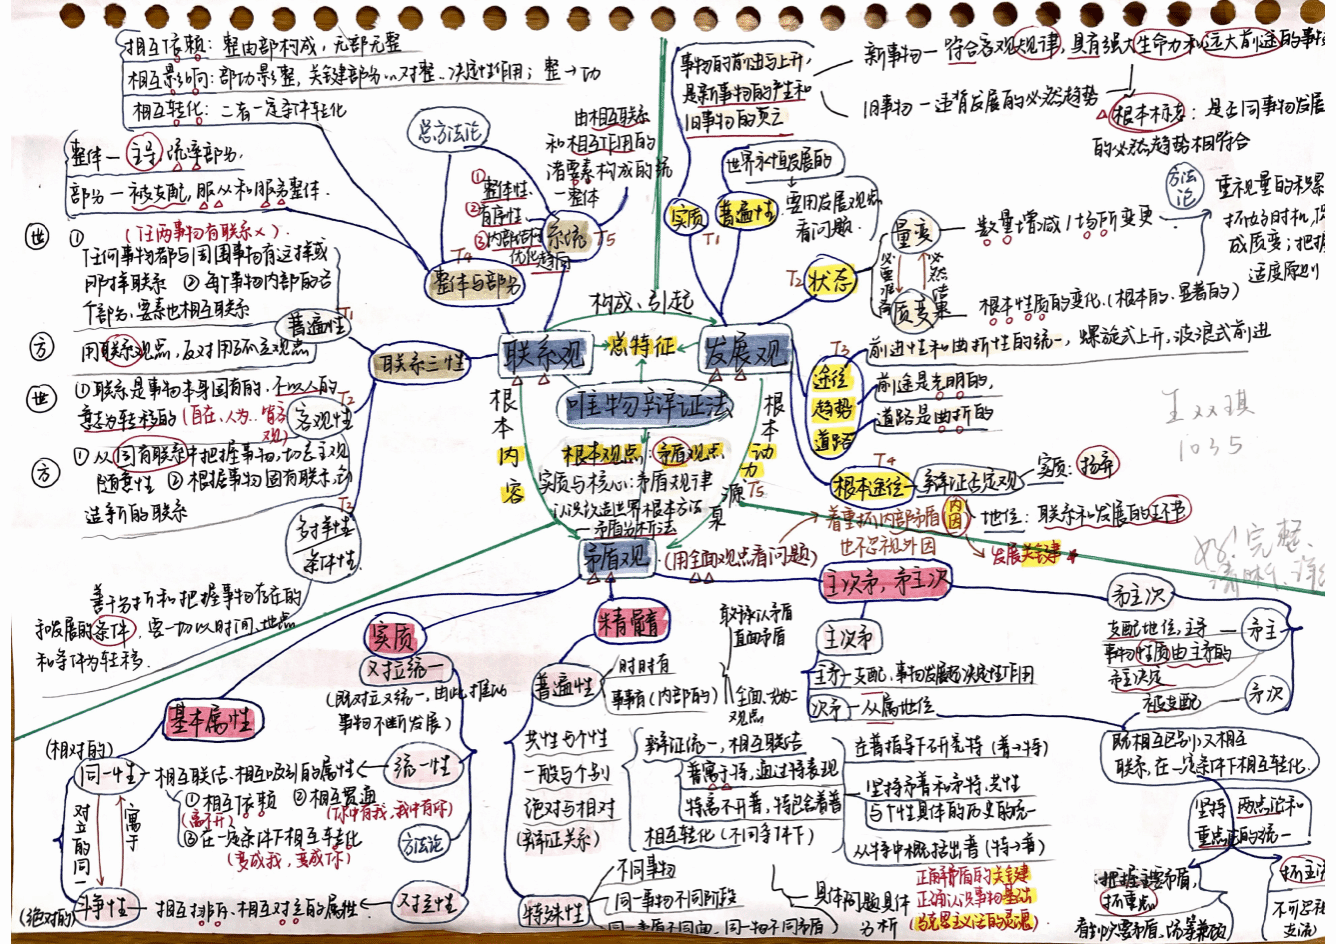 相互依赖：整由部构成，无部无整
相互影响：部功影整，关键部分以对整、决定性作用；整→功
相互转化：二者一定条件转化
整体—主导，统率部分，
部分—被支配，服从和服务整体．
总方法论
由相互联系
和相互作用的
诸要素构成的统
一整体
①整体性
②有序性
③内部结构
优化趋向
系统
T5
T4
整体与部分
世
①（T任两事物有联系×）
任何事物都与周围事物有这样或
那样联系 ②每个事物内部的各
个部分、要素也相互联系
普遍性
T1
方
用联系观点，反对用孤立观点
联系三性
世
①联系是事物本身固有的，不以人的
意志为转移的（自在、人为…皆客观）
T2
客观性
方
①从固有联系中把握事物，切忌主观
随意性 ②根据事物固有联系，建
造新的联系
T3
多样性
条件性
善于分析和把握事物存在的
和发展的条件，要一切以时间、地点
和条件为转移．
事物的前进与上升，
是新事物的产生和
旧事物的灭亡
新事物—符合客观规律，具有强大生命力和远大前途的事物
旧事物—违背发展的必然趋势
根本标志：是否同事物发展
的必然趋势相符合
世界永恒发展的
要用发展观点
看问题
实质
普遍性
T1
T2
状态
量变
数量增减/场所变更
方法论
重视量的积累
抓好时机，促
成质变；把握
适度原则
必要准备
必然结果
质变
根本性质的变化．（根本的、显著的）
构成、引起
联系观
总特征
发展观
唯物辩证法
T3
途径
趋势
道路
前进性和曲折性的统一，螺旋式上升，波浪式前进
前途是光明的，
道路是曲折的
T4
根本途径
辩证否定观
实质：扬弃
地位：联系和发展的环节
王双琪
1035
好！完整、
清晰、详
根本内容
根本动力
源泉
T5
根本观点：矛盾观点
实质与核心：矛盾规律
认识改造世界根本方法
—矛盾分析法
矛盾观
（用全面观点看问题）
着重抓内部矛盾
内因
也不忽视外因
发展关键
基本属性
实质
对立统一
（既对立又统一，由此推动
事物不断发展）
（相对的）
同一性—相互联结、相互吸引的属性
统一性
①相互依赖 ②相互贯通
（离不开）（你中有我，我中有你）
③在一定条件下相互转化
（变成我，变成你）
对立的同一
寓于
方法论
（绝对的）
斗争性—相互排斥、相互对立的属性
对立性
精髓
普遍性
时时有
事事有（内部的）
敢于承认矛盾
直面矛盾
全面、一分为二
观点
共性与个性
一般与个别
绝对与相对
（辩证关系）
辩证统一，相互联结
普寓于特，通过特表现
特离不开普，特包含着普
相互转化（不同条件下）
在普指导下不开究特（普→特）
坚持矛普和矛特、共性
与个性具体的历史的统一
从特中概括出普（特→普）
特殊性
不同事物
同一事物不同阶段
同一矛盾不同面，同一物不同矛盾
具体问题具体
分析
正确解矛盾的关键
正确认识事物基础
马克思主义活的灵魂
主次矛，矛主次
主次矛
主矛—支配，事物发展起决定性作用
次矛—从属地位
矛主次
支配地位，主导
事物性质由主矛的
矛主决定
矛主
被支配
矛次
既相互区别又相互
联系，在一定条件下相互转化．
坚持两点论和
重点论的统一
把握主要矛盾，
抓重点
看到次要矛盾，统筹兼顾
抓主流
不可忽视
支流